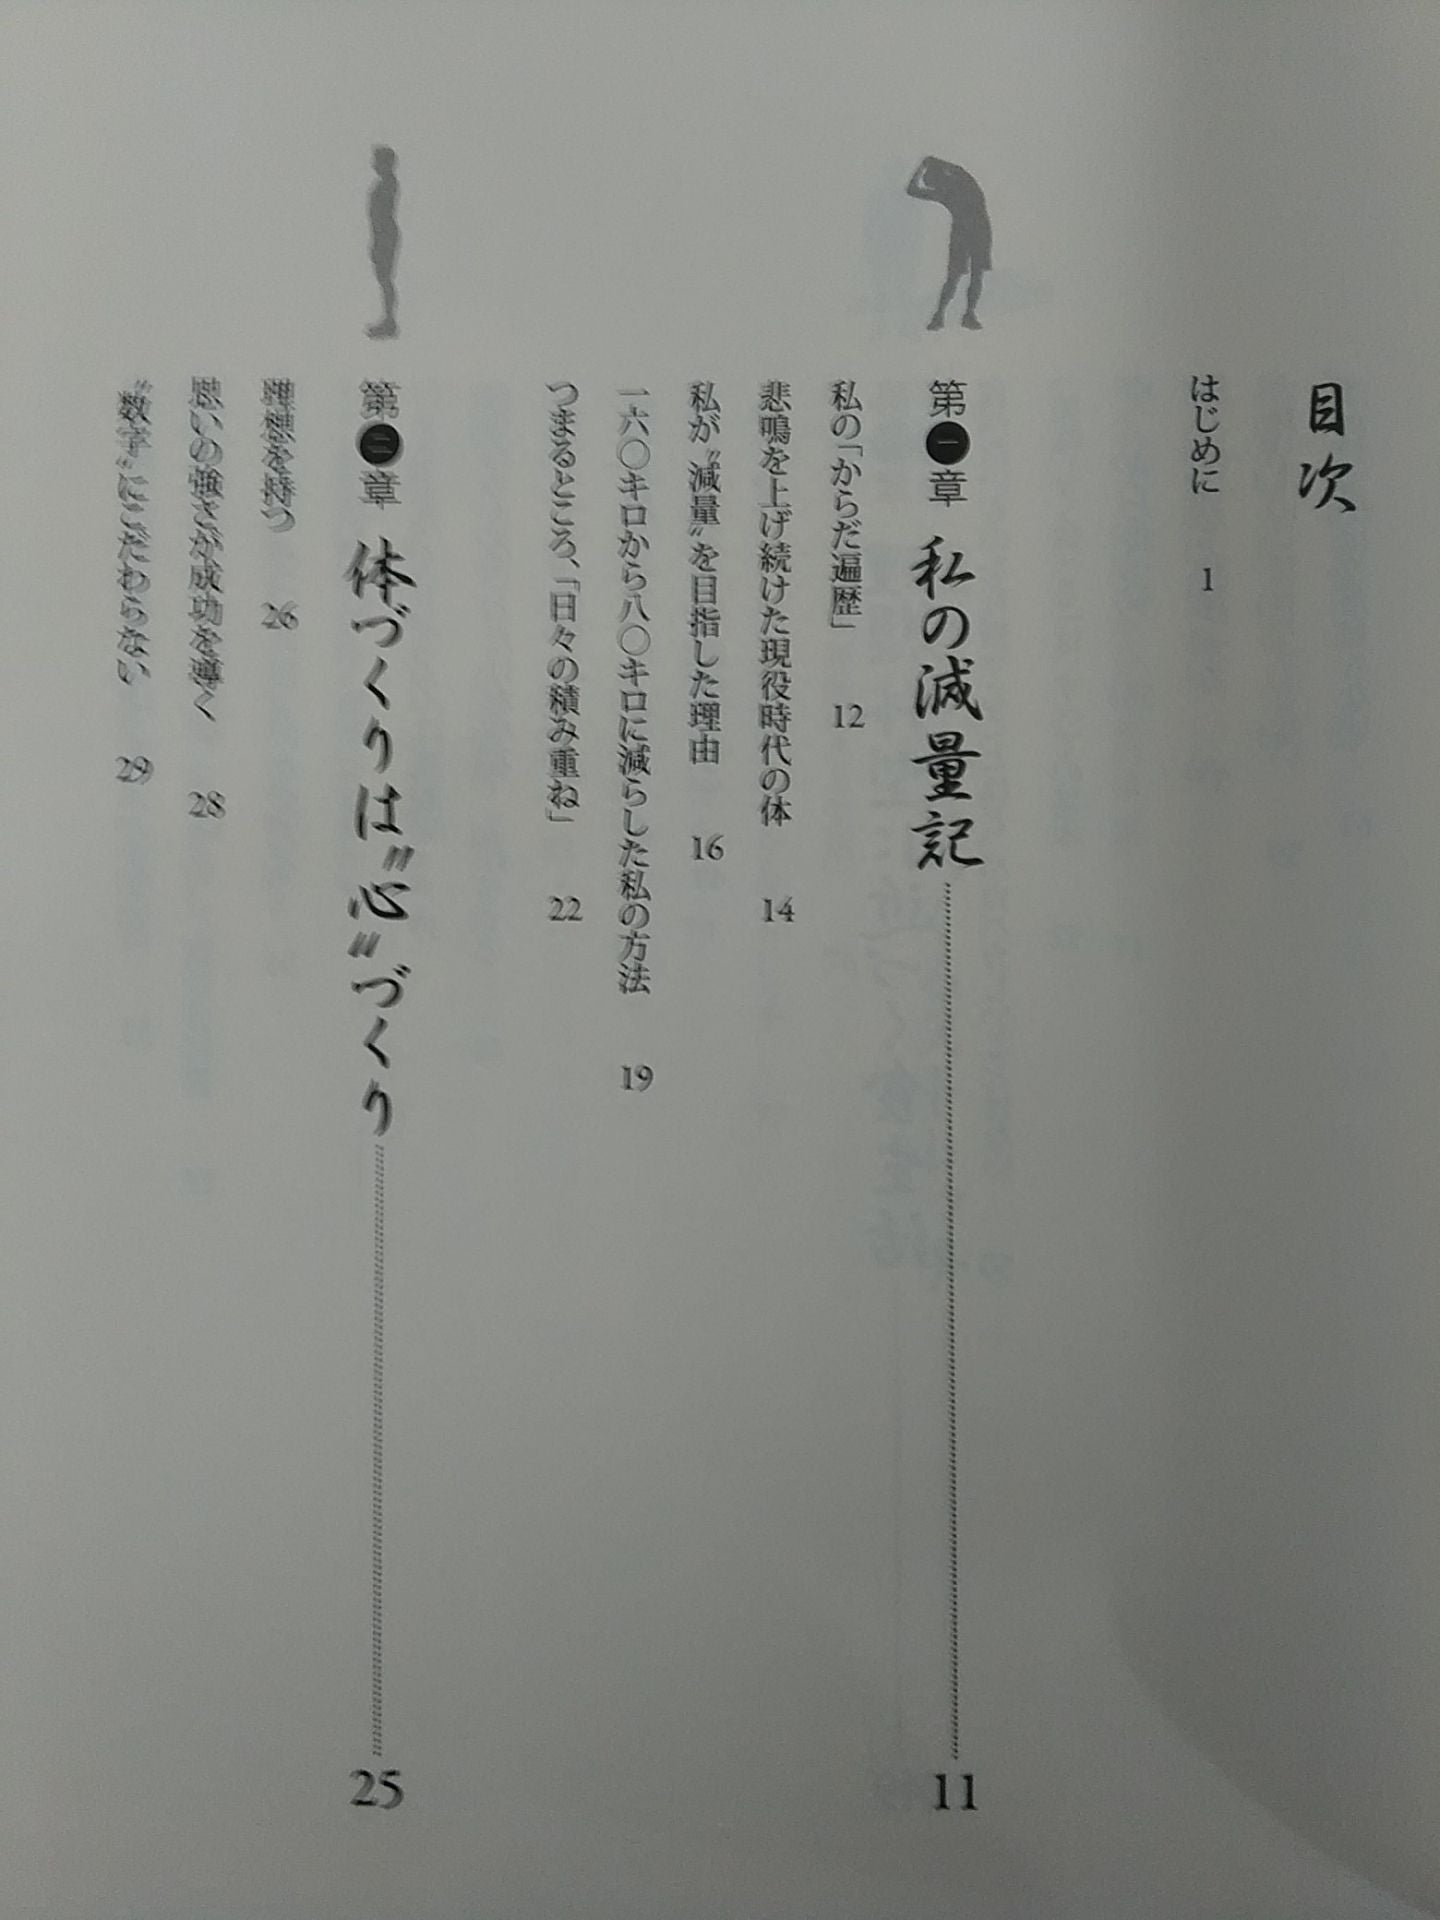 目次
はじめに 1
第一章 私の減量記 11
私の「からだ遍歴」 12
悲鳴を上げ続けた現役時代の体 14
私が〝減量〟を目指した理由 16
一六〇キロから八〇キロに減らした私の方法 19
つまるところ、「日々の積み重ね」 22
第二章 体づくりは〝心〟づくり 25
理想を持つ 26
思いの強さが成功を導く 28
〝数字〟にこだわらない 29